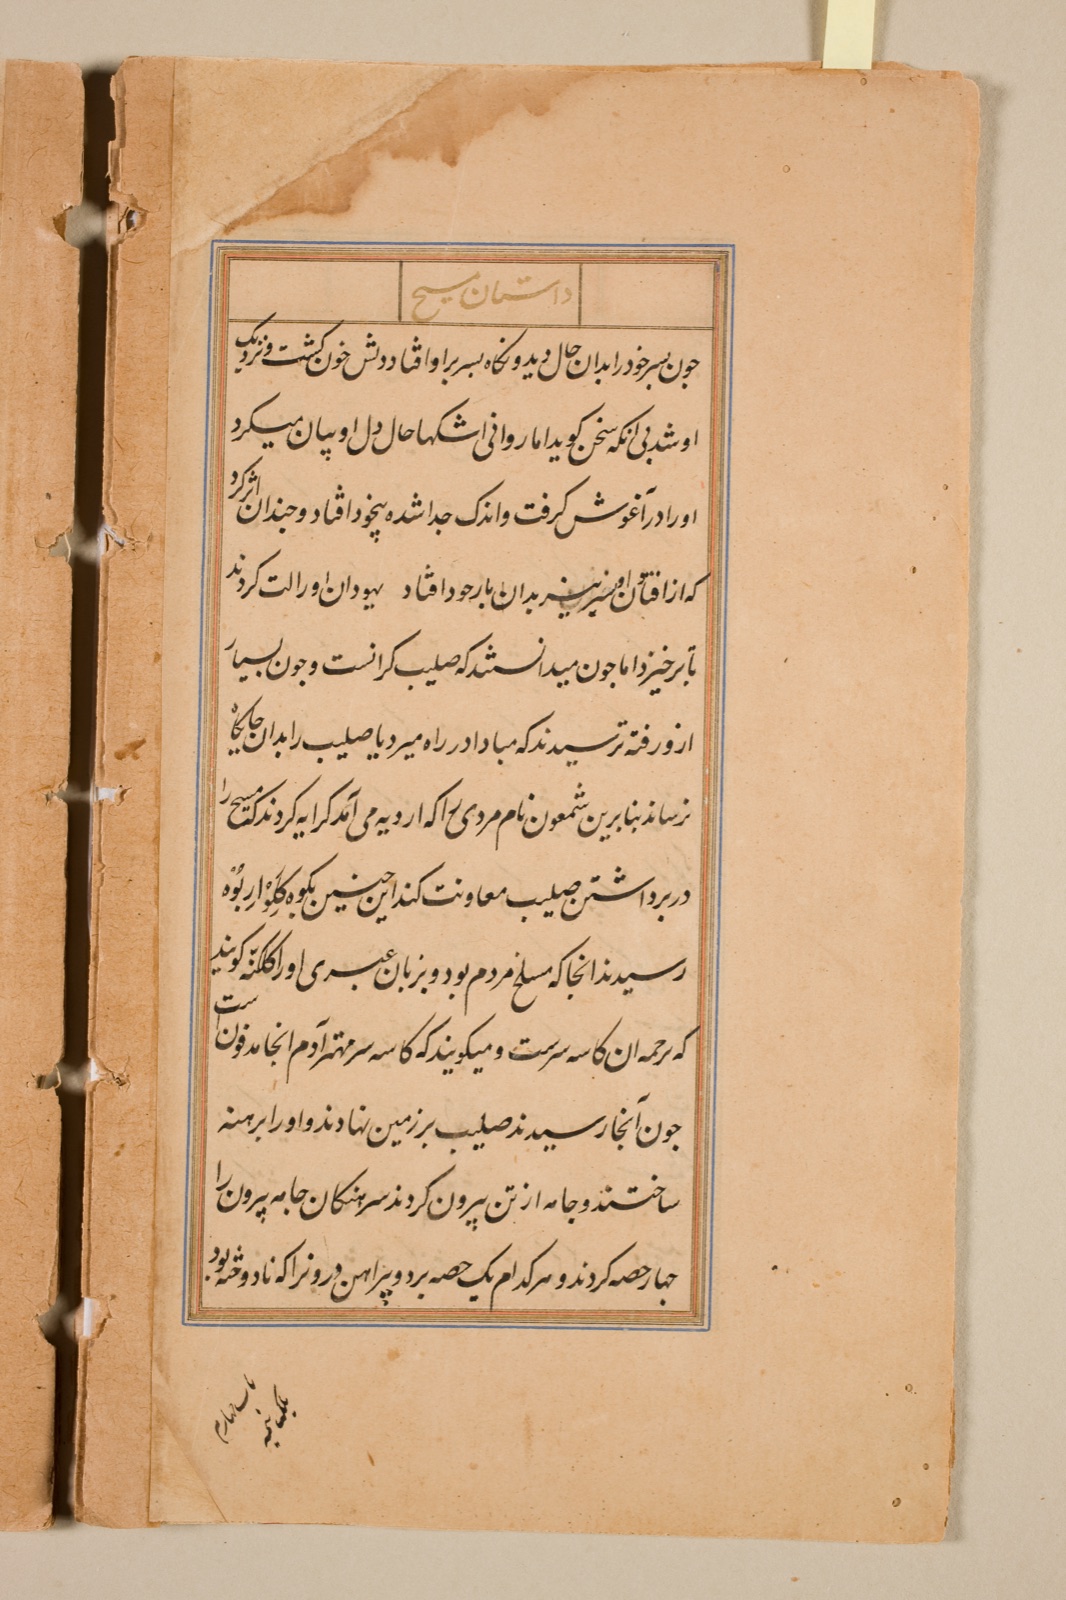 داستان مسیح
جون بسر خود را بدان حال دید و نکاه بسر بر او افتاد دلش خون کشت و نزدیک
او شد بی انکه سخن کوید اما روانی اشکها حال دل او بیان میکرد
او را در آغوش کرفت و اندک جدا شده بیخود افتاد و جندان اثر کرد
که از افتادن او بسر نیز بدان بار خود افتاد یهودان او را لت کردند
تا برخیزد اما جون میدانستند که صلیب کرانست و جون بسیار
ازو رفته ترسیدند که مبادا در راه میرد یا صلیب را بدان جایکاه
نرساند بنابرین شمعون نام مردی را که از دیه می آمد کرایه کردند که مسیح را
در برداشتن صلیب معاونت کند این جنین بکوه کلواربوه
رسیدند انجا که مسلخ مردم بود و بزبان عبری او را کلکته کویند
که ترجمه ان کاسه سرست و میکویند که کاسه سر مهتر آدم انجا مدفون است
جون آنجا رسیدند صلیب بر زمین نهادند و او را برهنه
ساختند و جامه از تن بیرون کردند سرهنکان جامه بیرون را
جهار حصه کردند و هر کدام یک حصه برد و پیراهن درونرا که نادوخته بود
باب چهارم